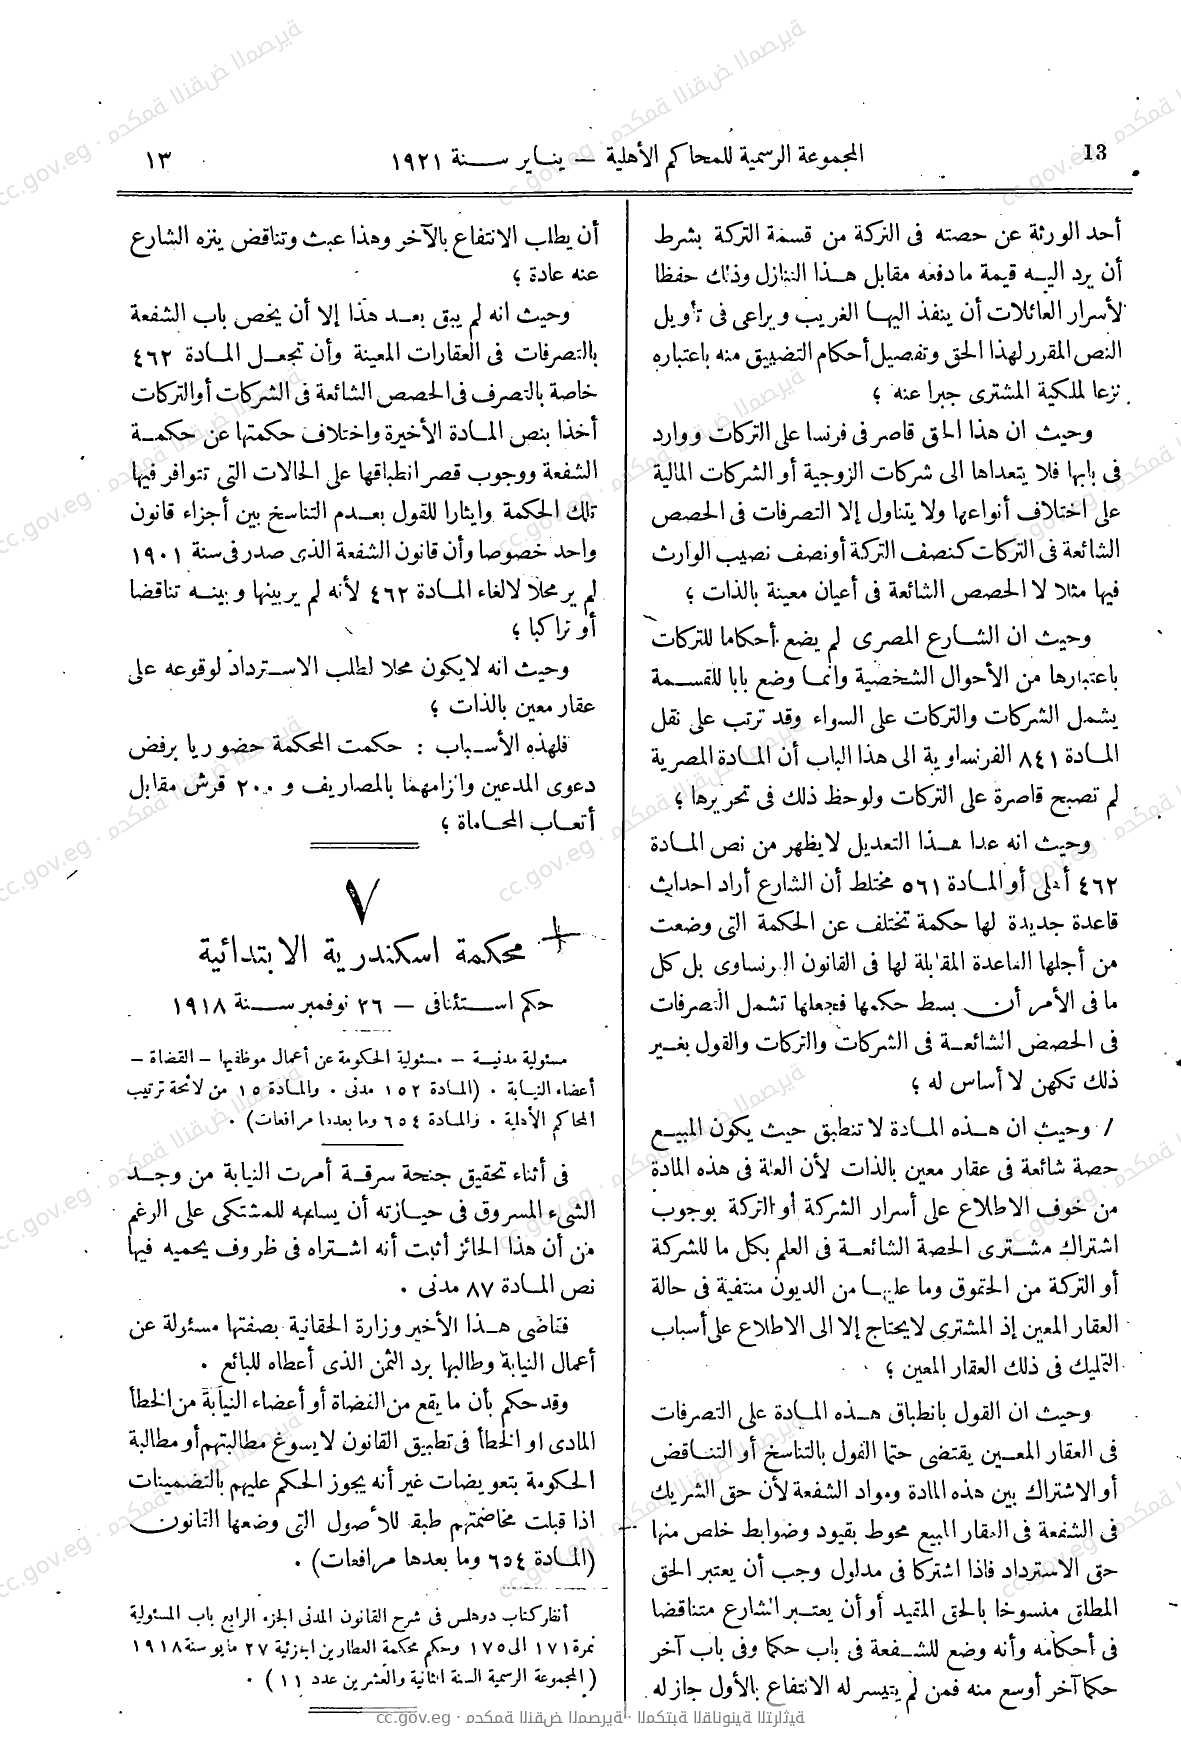 13
المجموعة الرسمية للمحاكم الأهلية — يناير سنة ١٩٢١
١٣
أحد الورثة عن حصته فى التركة من قسمة التركة بشرط
أن يرد اليه قيمة مادفعه مقابل هذا التنازل وذلك حفظا
لأسرار العائلات أن ينفذ اليها الغريب ويراعى فى تأويل
النص المقرر لهذا الحق وتفصيل أحكام التضييق منه باعتباره
نزعا لملكية المشترى جبرا عنه ؛
وحيث ان هذا الحق قاصر فى فرنسا على التركات ووارد
فى بابها فلا يتعداها الى شركات الزوجية أو الشركات المالية
على اختلاف أنواعها ولا يتناول إلا التصرفات فى الحصص
الشائعة فى التركات كنصف التركة أو نصف نصيب الوارث
فيها مثلا لا الحصص الشائعة فى أعيان معينة بالذات ؛
وحيث ان الشارع المصرى لم يضع أحكاما للتركات
باعتبارها من الأحوال الشخصية وانما وضع بابا للقسمة
يشمل الشركات والتركات على السواء وقد ترتب على نقل
المادة ٨٤١ الفرنساوية الى هذا الباب أن المادة المصرية
لم تصبح قاصرة على التركات ولوحظ ذلك فى تحريرها ؛
وحيث انه عدا هذا التعديل لا يظهر من نص المادة
٤٦٢ أهلى أو المادة ٥٦١ مختلط أن الشارع أراد احداث
قاعدة جديدة لها حكمة تختلف عن الحكمة التى وضعت
من أجلها القاعدة المقابلة لها فى القانون الفرنساوى بل كل
ما فى الأمر أن بسط حكمها فجعلها تشمل التصرفات
فى الحصص الشائعة فى الشركات والتركات والقول بغير
ذلك تكهن لا أساس له ؛
وحيث ان هذه المادة لا تنطبق حيث يكون المبيع
حصة شائعة فى عقار معين بالذات لأن العلة فى هذه المادة
من خوف الاطلاع على أسرار الشركة أو التركة بوجوب
اشتراك مشترى الحصة الشائعة فى العلم بكل ما للشركة
أو التركة من الحقوق وما عليها من الديون منتفية فى حالة
العقار المعين إذ المشترى لايحتاج إلا الى الاطلاع على أسباب
التمليك فى ذلك العقار المعين ؛
وحيث ان القول بانطباق هذه المادة على التصرفات
فى العقار المعين يقتضى حتما القول بالتناسخ أو التناقض
أو الاشتراك بين هذه المادة ومواد الشفعة لأن حق الشريك
فى الشفعة فى العقار المبيع محوط بقيود وضوابط خلص منها
حق الاسترداد فاذا اشتركا فى مدلول وجب أن يعتبر الحق
المطلق منسوخا بالحق المقيد أو أن يعتبر الشارع متناقضا
فى أحكامه وأنه وضع للشفعة فى باب حكما وفى باب آخر
حكما آخر أوسع منه فمن لم يتيسر له الانتفاع بالأول جاز له
أن يطلب الانتفاع بالآخر وهذا عبث وتناقض ينزه الشارع
عنه عادة ؛
وحيث انه لم يبق بعد هذا إلا أن يخص باب الشفعة
بالتصرفات فى العقارات المعينة وأن تجعل المادة ٤٦٢
خاصة بالتصرف فى الحصص الشائعة فى الشركات أوالتركات
أخذا بنص المادة الأخيرة واختلاف حكمتها عن حكمة
الشفعة ووجوب قصر انطباقها على الحالات التى تتوافر فيها
تلك الحكمة وايثارا للقول بعدم التناسخ بين أجزاء قانون
واحد خصوصا وأن قانون الشفعة الذى صدر فى سنة ١٩٠١
لم ير محلا لالغاء المادة ٤٦٢ لأنه لم ير بينها وبينه تناقضا
أو تراكبا ؛
وحيث انه لايكون محلا لطلب الاسترداد لوقوعه على
عقار معين بالذات ؛
فلهذه الأسباب : حكمت المحكمة حضوريا برفض
دعوى المدعين والزامهما بالمصاريف و ٢٠٠ قرش مقابل
أتعاب المحاماة ؛
٧
محكمة اسكندرية الابتدائية
حكم استئنافى — ٢٦ نوفمبر سنة ١٩١٨
مسئولية مدنية — مسئولية الحكومة عن أعمال موظفيها — القضاة —
أعضاء النيابة . (المادة ١٥٢ مدنى . والمادة ١٥ من لائحة ترتيب
المحاكم الأهلية . والمادة ٦٥٤ وما بعدها مرافعات) .
فى أثناء تحقيق جنحة سرقة أمرت النيابة من وجد
الشىء المسروق فى حيازته أن يسلمه للمشتكى على الرغم
من أن هذا الحائز أثبت أنه اشتراه فى ظروف يحميه فيها
نص المادة ٨٧ مدنى .
فتاضى هذا الأخير وزارة الحقانية بصفتها مسئولة عن
أعمال النيابة وطالبها برد الثمن الذى أعطاه للبائع .
وقد حكم بأن ما يقع من القضاة أو أعضاء النيابة من الخطأ
المادى او الخطأ فى تطبيق القانون لا يسوغ مطالبتهم أو مطالبة
الحكومة بتعويضات غير أنه يجوز الحكم عليهم بالتضمينات
اذا قبلت مخاصمتهم طبقا للأصول التى وضعها القانون
(المادة ٦٥٤ وما بعدها مرافعات) .
أنظر كتاب دوهلس فى شرح القانون المدنى الجزء الرابع باب المسئولية
نمرة ١٧١ الى ١٧٥ وحكم محكمة العطارين الجزئية ٢٧ مايو سنة ١٩١٨
(المجموعة الرسمية السنة الثانية والعشرين عدد ١١) .
cc.gov.eg · محكمة النقض المصرية · المكتبة القانونية التراثية